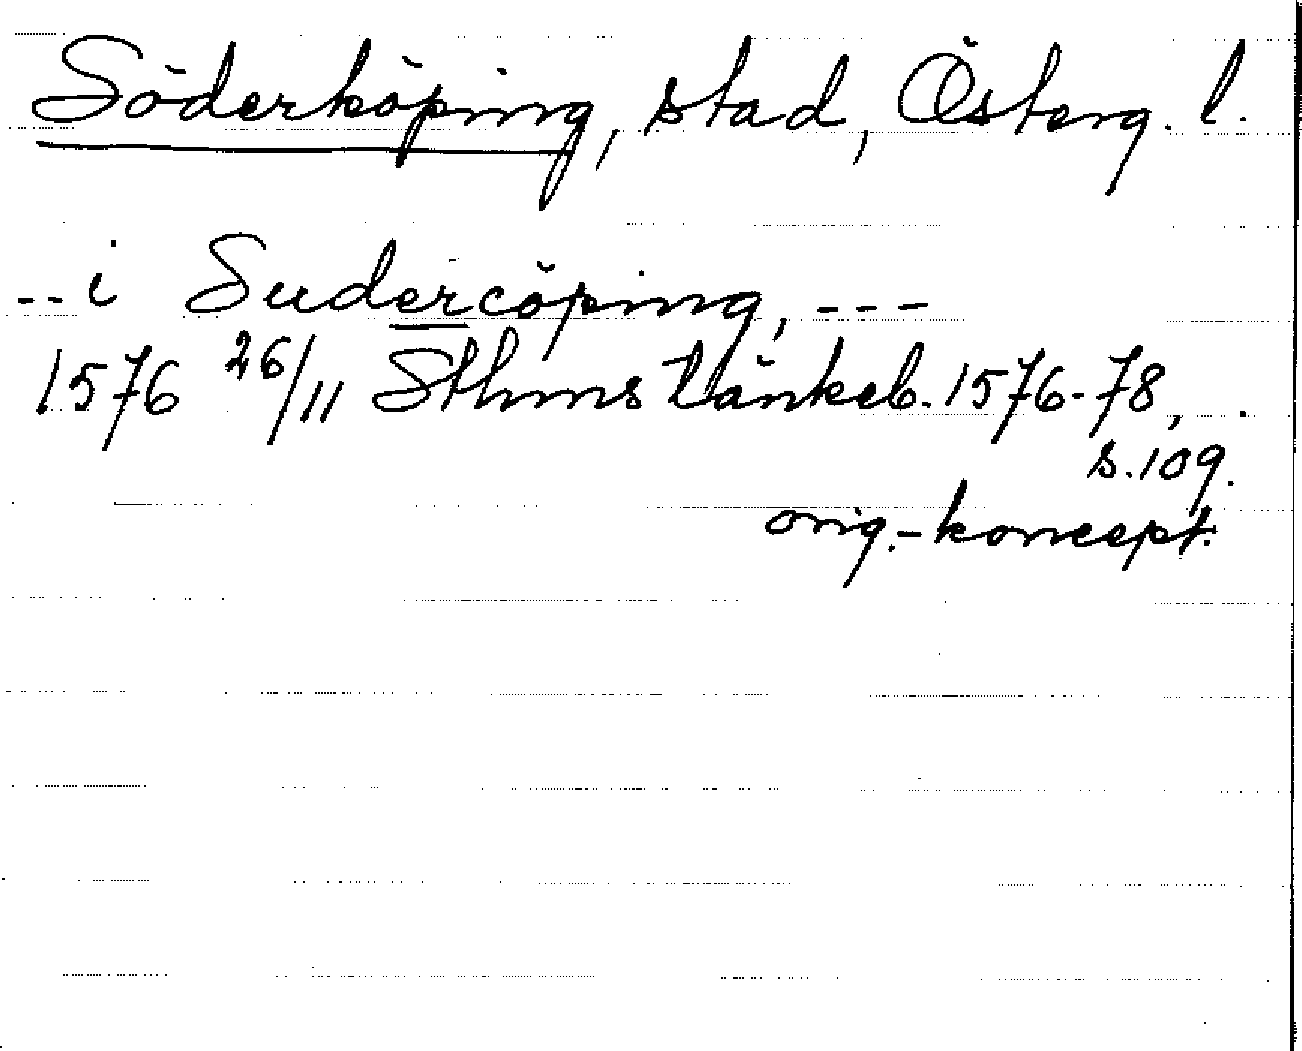 Söderköping, stad, Österg. l.
--i Sudercöping, ---
1576 26/11 Sthms tänkeb. 1576-78,
s. 109.
orig.-koncept.